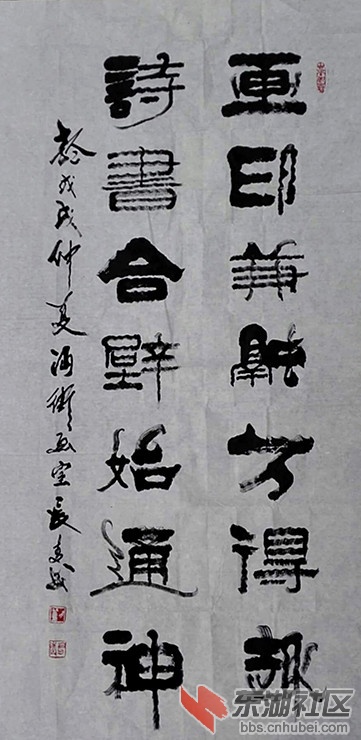 畫印兼融方得趣
詩書合壁始通神
戊戌仲夏
东湖社区
bbs.cnhubei.com